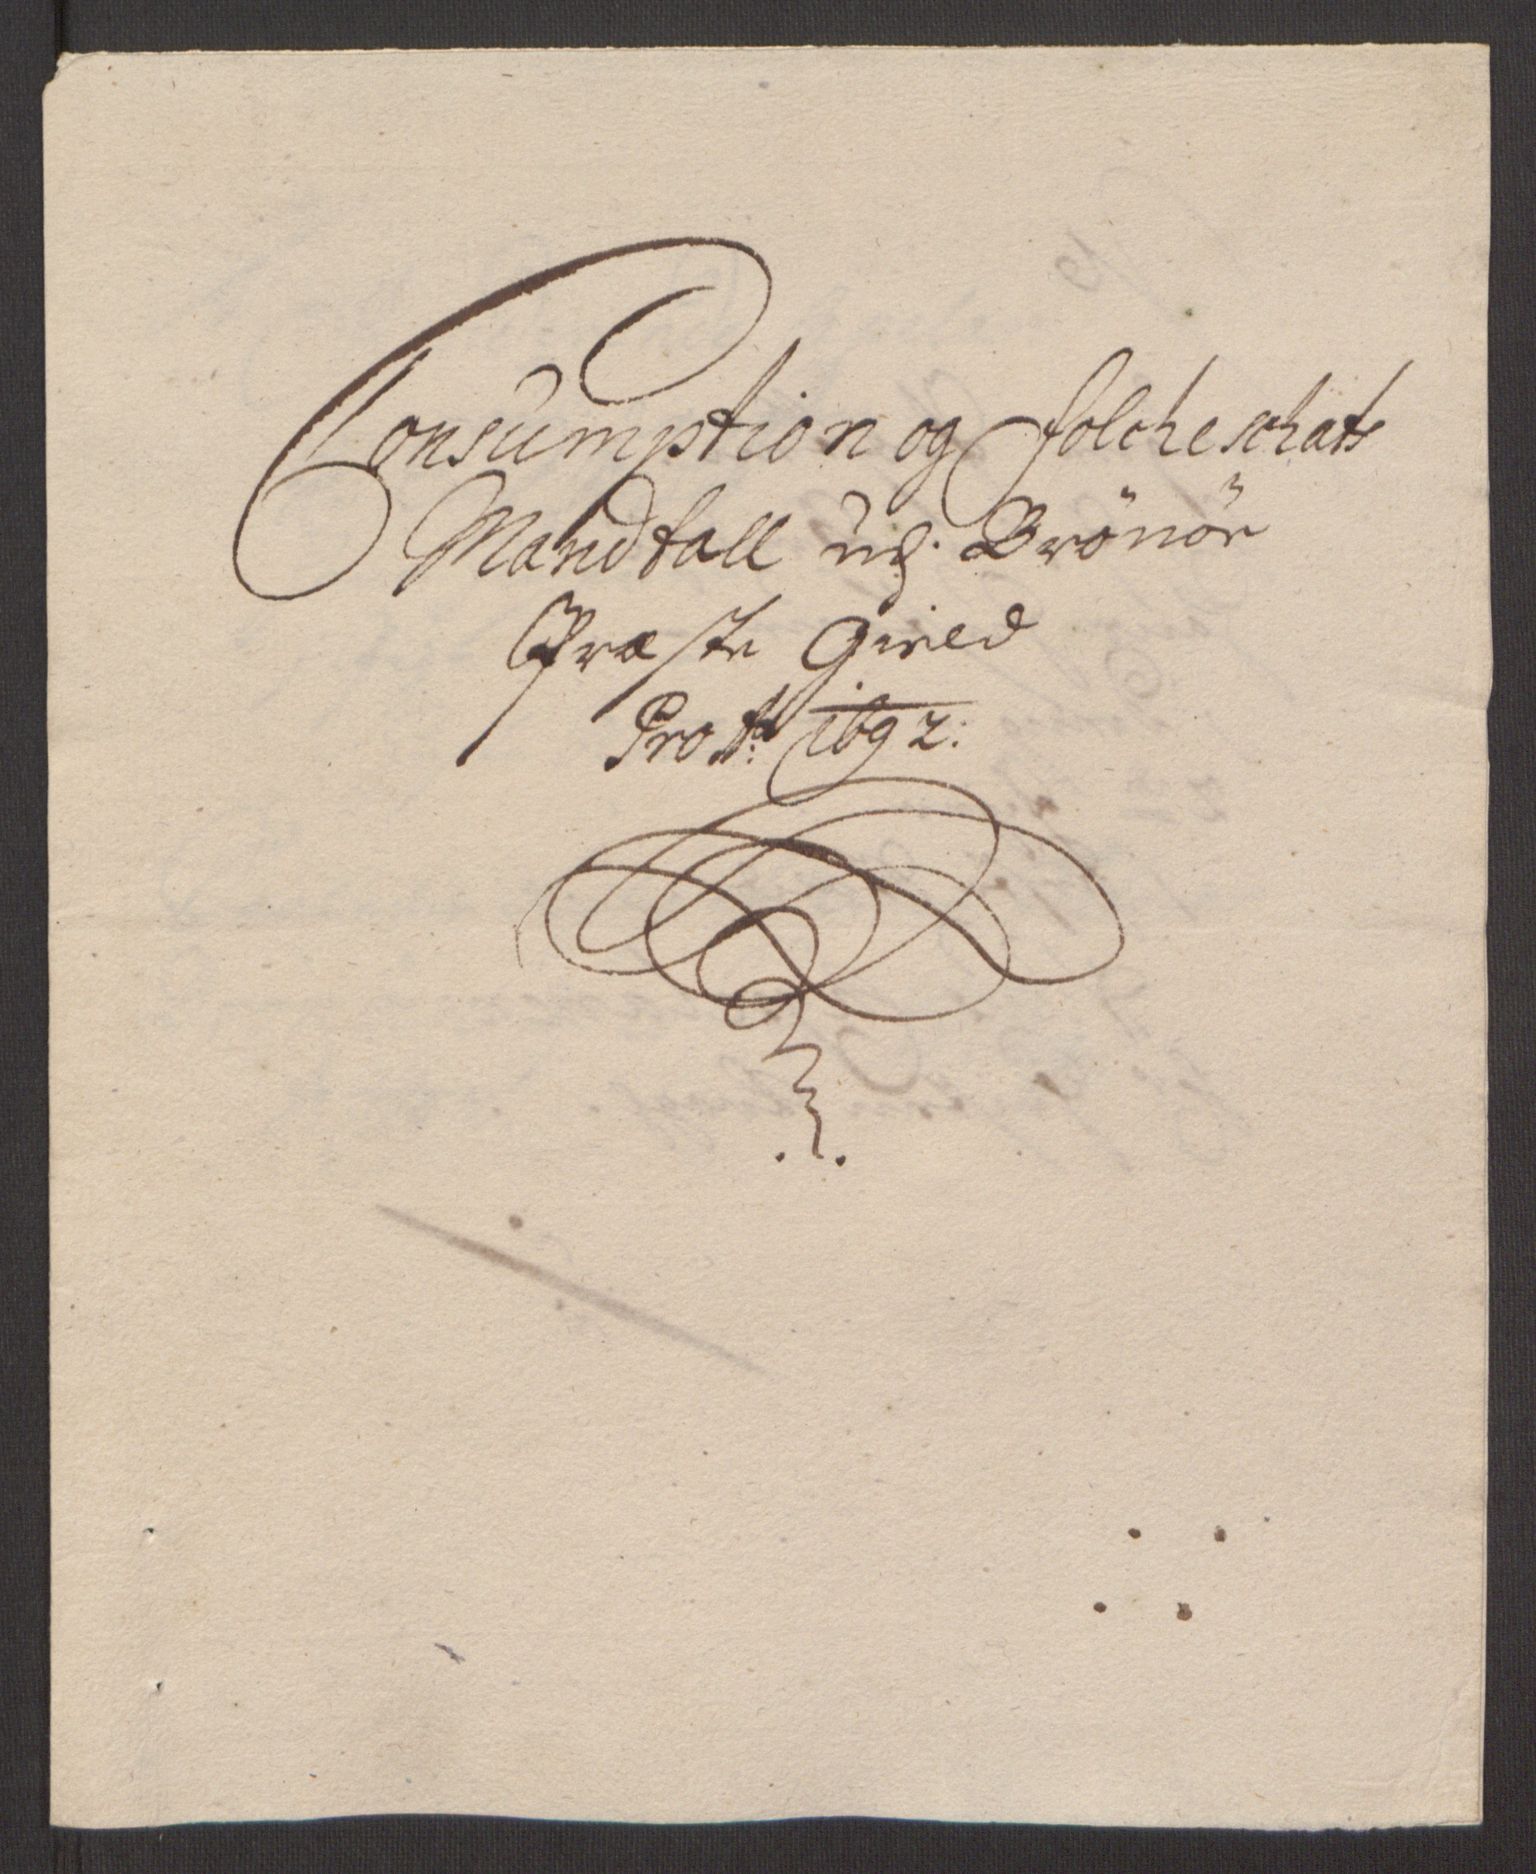 Consumption og folcheschats
Mandtall udj. Brönör
Præste Gield
Pro Ao: 1692: